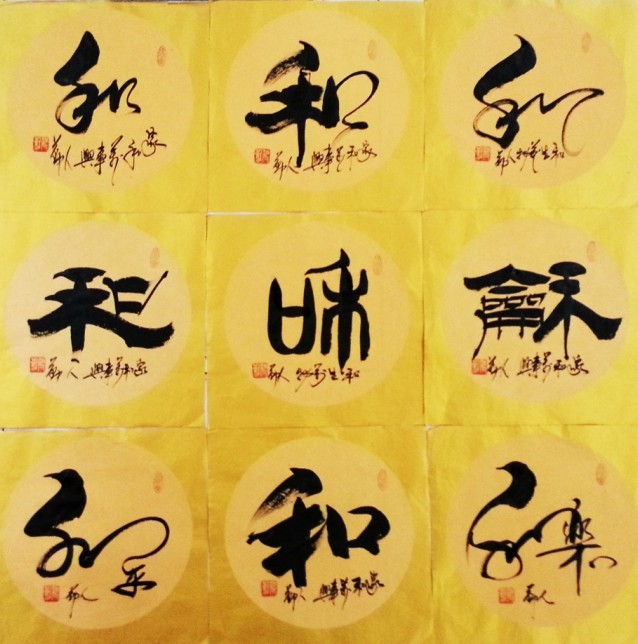 和
家和萬事興 人
和
家和萬事興 人
和
和生萬物 人
和
家和萬事興 人
咊
和生萬物 人
龢
家和萬事興 人
和平
人
和
家和萬事興 人
和樂
人